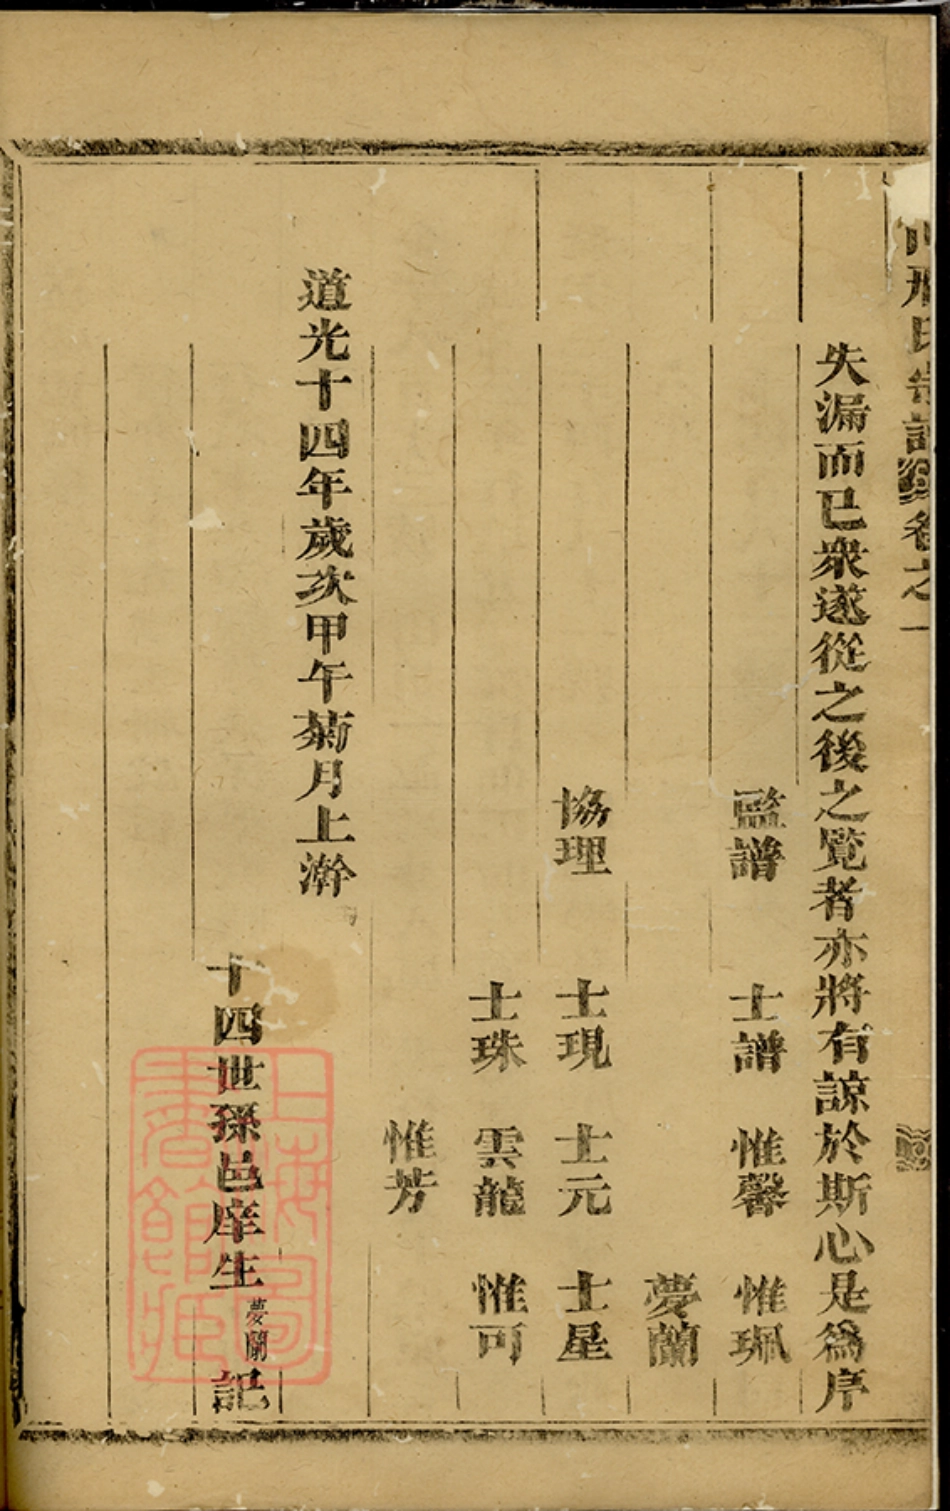 氏卷之一
失漏而已衆遂從之後之覽者亦將有諒於斯心是為序
監譜 士譜 惟馨 惟珮
夢蘭
協理 士現 士元 士星
士珠 雲龍 惟可
惟芳
道光十四年歲次甲午菊月上澣
十四世孫邑庠生夢蘭記
上海圖書館藏